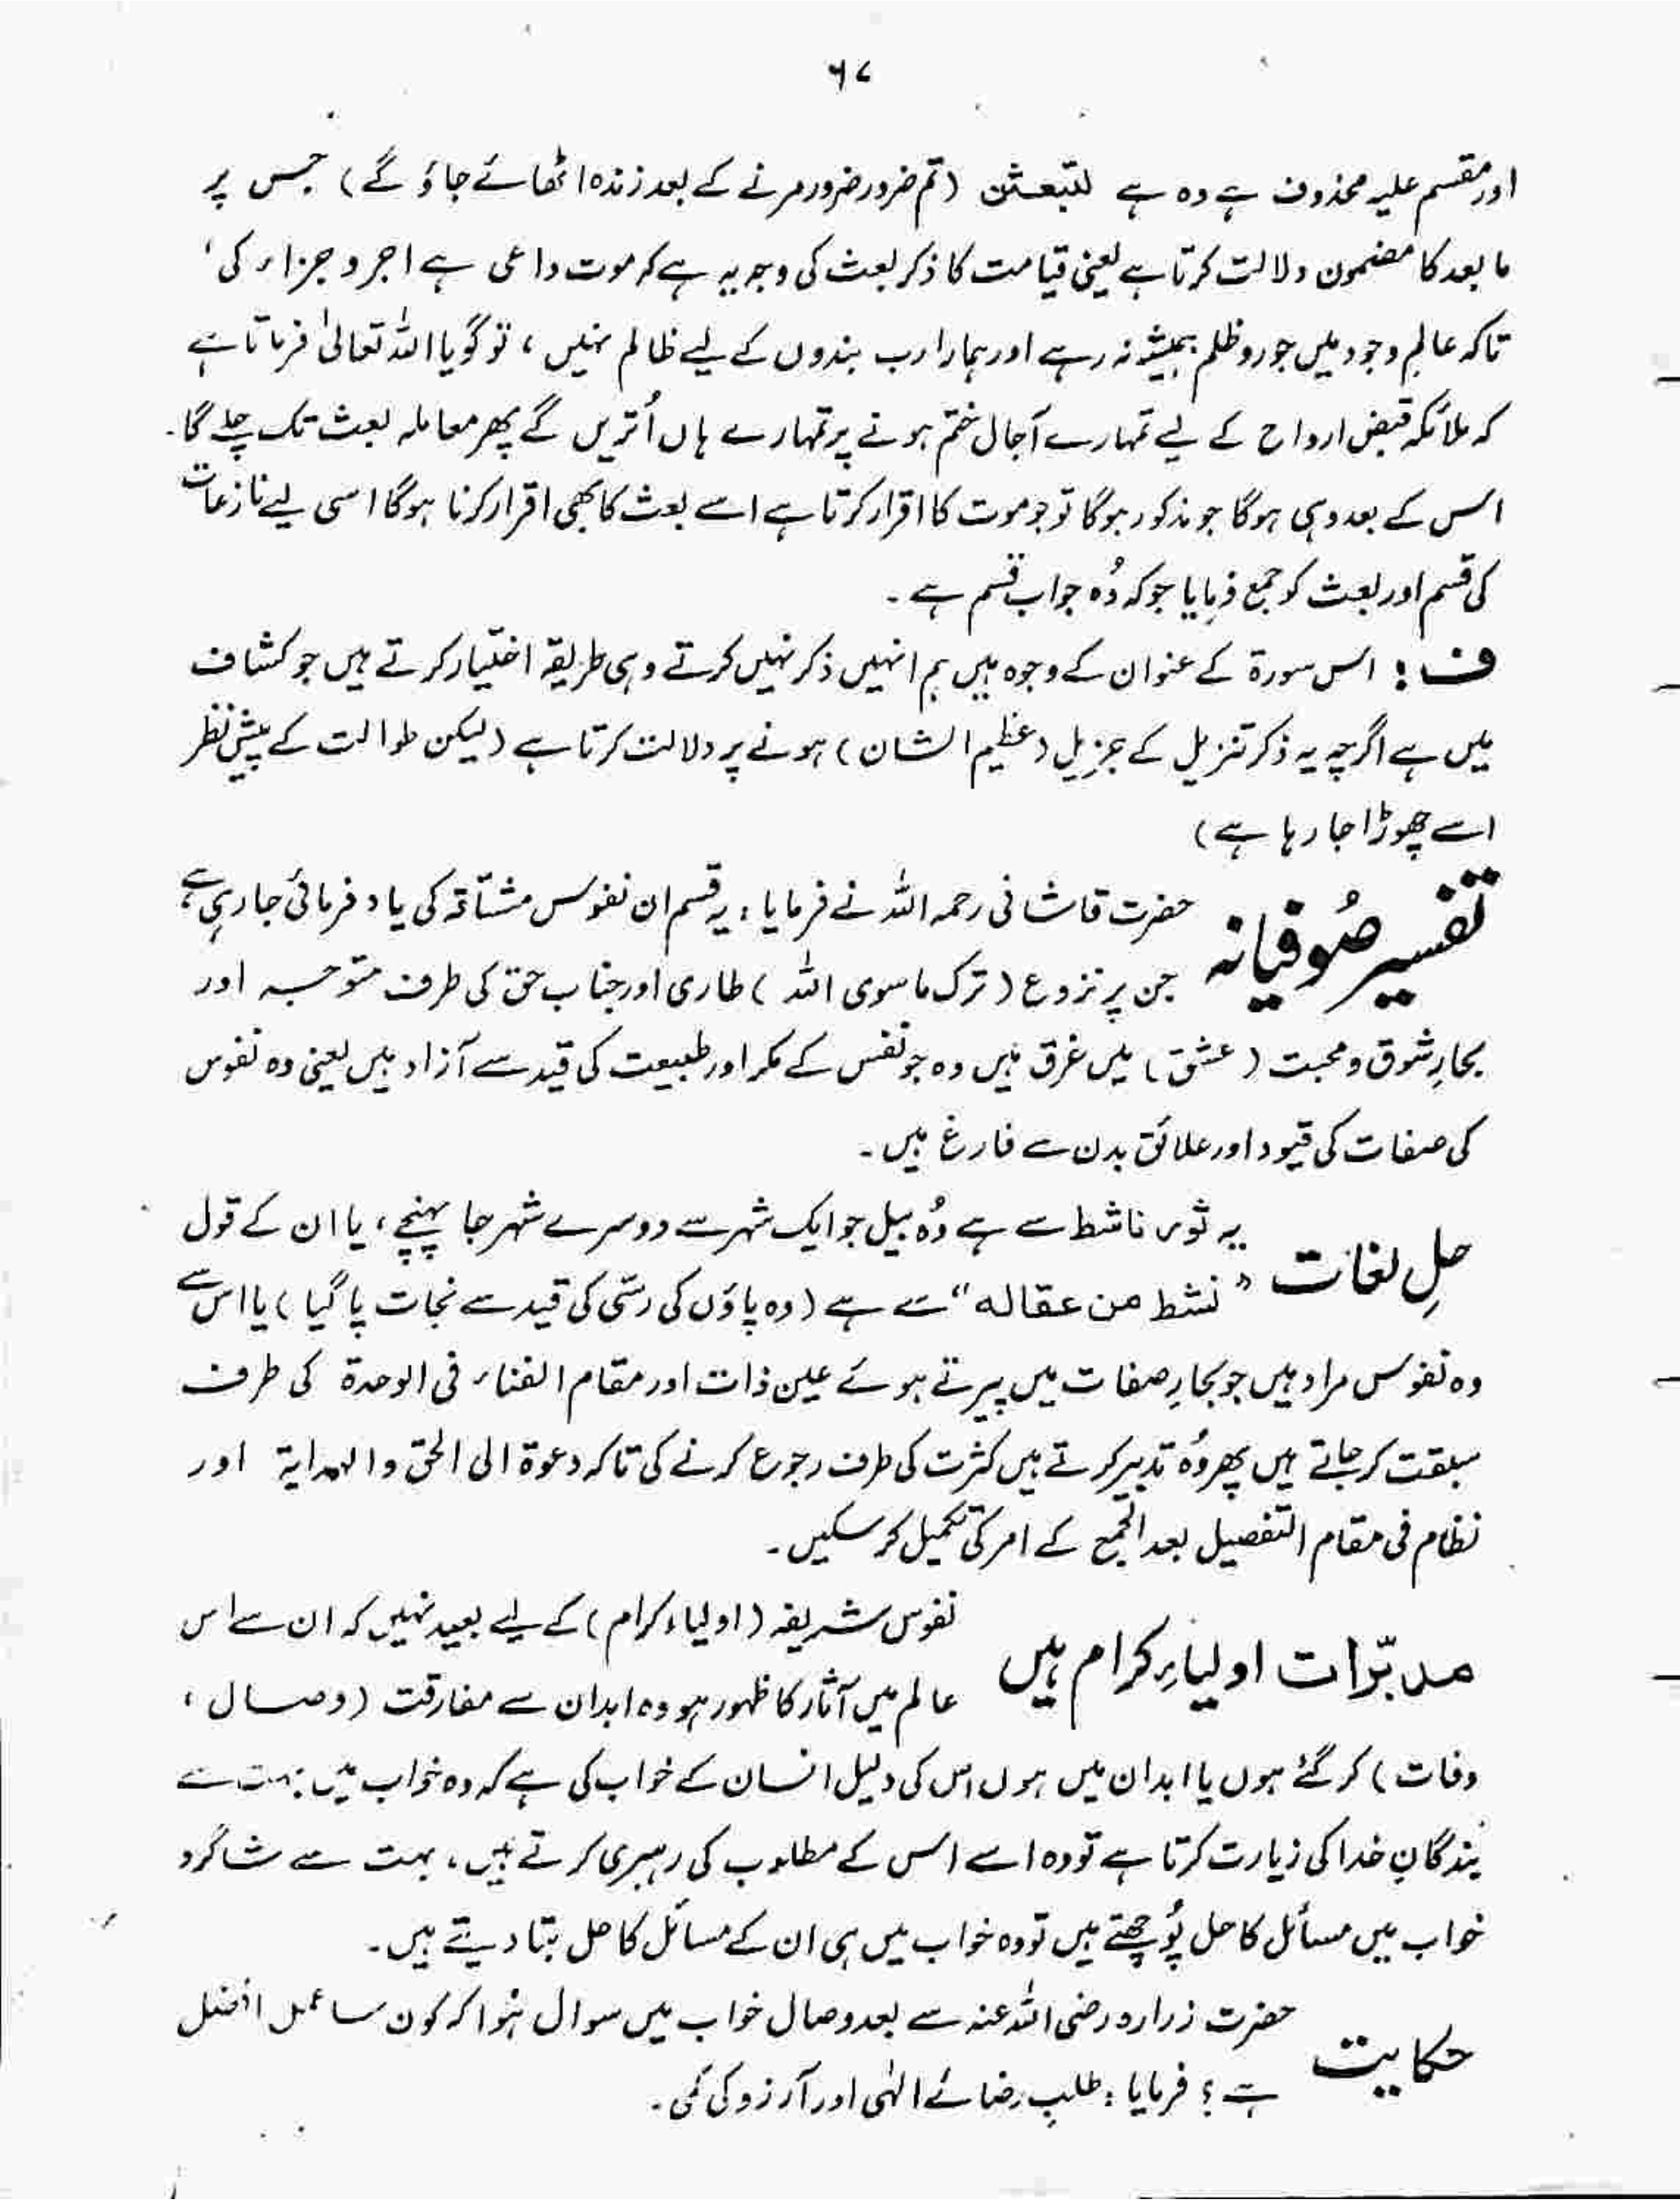 ۶۷
اور مقسم علیہ محذوف ہے وہ ہے لتبعثن (تم ضرور ضرور مرنے کے بعد زندہ اٹھائے جاؤ گے) جس پر
ما بعد کا مضمون دلالت کرتا ہے یعنی قیامت کا ذکر بعث کی وجہ یہ ہے کہ موت داعی ہے اجر و جزاء کی،
تاکہ عالمِ وجود میں جور و ظلم ہمیشہ نہ رہے اور ہمارا رب بندوں کے لیے ظالم نہیں ، تو گویا اللہ تعالیٰ فرماتا ہے
کہ ملائکہ قبض ارواح کے لیے تمہارے آجال ختم ہونے پر تمہارے ہاں اُتریں گے پھر معاملہ بعث تک چلے گا۔
اس کے بعد وہی ہوگا جو مذکور ہوگا تو جو موت کا اقرار کرتا ہے اسے بعث کا بھی اقرار کرنا ہوگا اسی لیے نازعات
کی قسم اور بعث کو جمع فرمایا جو کہ وُہ جواب قسم ہے ۔
ف : اس سورۃ کے عنوان کے وجوہ ہیں ہم انہیں ذکر نہیں کرتے وہی طریقہ اختیار کرتے ہیں جو کشاف
میں ہے اگرچہ یہ ذکر تنزیل کے جزیل (عظیم الشان) ہونے پر دلالت کرتا ہے (لیکن طوالت کے پیش نظر
اسے چھوڑا جا رہا ہے)
تفسیر صُوفیانہ حضرت قاشانی رحمہ اللہ نے فرمایا : یہ قسم ان نفوس مشتاقہ کی یاد فرمائی جا رہی ہے،
جن پر نزوع (ترک ماسوی اللہ ) طاری اور جناب حق کی طرف متوجہ اور
بحارِ شوق و محبت (عشق) میں غرق ہیں وہ جو نفس کے مکر اور طبیعت کی قید سے آزاد ہیں یعنی وہ نفوس
کی صفات کی قیود اور علائق بدن سے فارغ ہیں ۔
حلِ لغات یہ ثور ناشط سے ہے وُہ بیل جو ایک شہر سے دوسرے شہر جا پہنچے ، یا ان کے قول
"نشط من عقاله" سے ہے (وہ پاؤں کی رسّی کی قید سے نجات پا گیا ) یا اس سے
وہ نفوس مراد ہیں جو بحارِ صفات میں پیرتے ہوئے عین ذات اور مقام الفناء فی الوحدۃ کی طرف
سبقت کر جاتے ہیں پھر وُہ تدبیر کرتے ہیں کثرت کی طرف رجوع کرنے کی تاکہ دعوۃ الی الحق والہدایۃ اور
نظام فی مقام التفصیل بعد الجمع کے امر کی تکمیل کر سکیں ۔
مدبّرات اولیاءِ کرام ہیں نفوس شریفہ (اولیاء کرام) کے لیے بعید نہیں کہ ان سے اس
عالم میں آثار کا ظہور ہو وہ ابدان سے مفارقت (وصال ،
وفات ) کر گئے ہوں یا ابدان میں ہوں اس کی دلیل انسان کے خواب کی ہے کہ وہ خواب میں بہت سے
بندگانِ خدا کی زیارت کرتا ہے تو وہ اسے اس کے مطلوب کی رہبری کرتے ہیں ، بہت سے شاگرد
خواب میں مسائل کا حل پُوچھتے ہیں تو وہ خواب میں ہی ان کے مسائل کا حل بتا دیتے ہیں ۔
حکایت حضرت زرارہ رضی اللہ عنہ سے بعد وصال خواب میں سوال ہُوا کہ کون سا عمل افضل
ہے ؟ فرمایا : طلبِ رضائے الٰہی اور آرزو کی کمی ۔